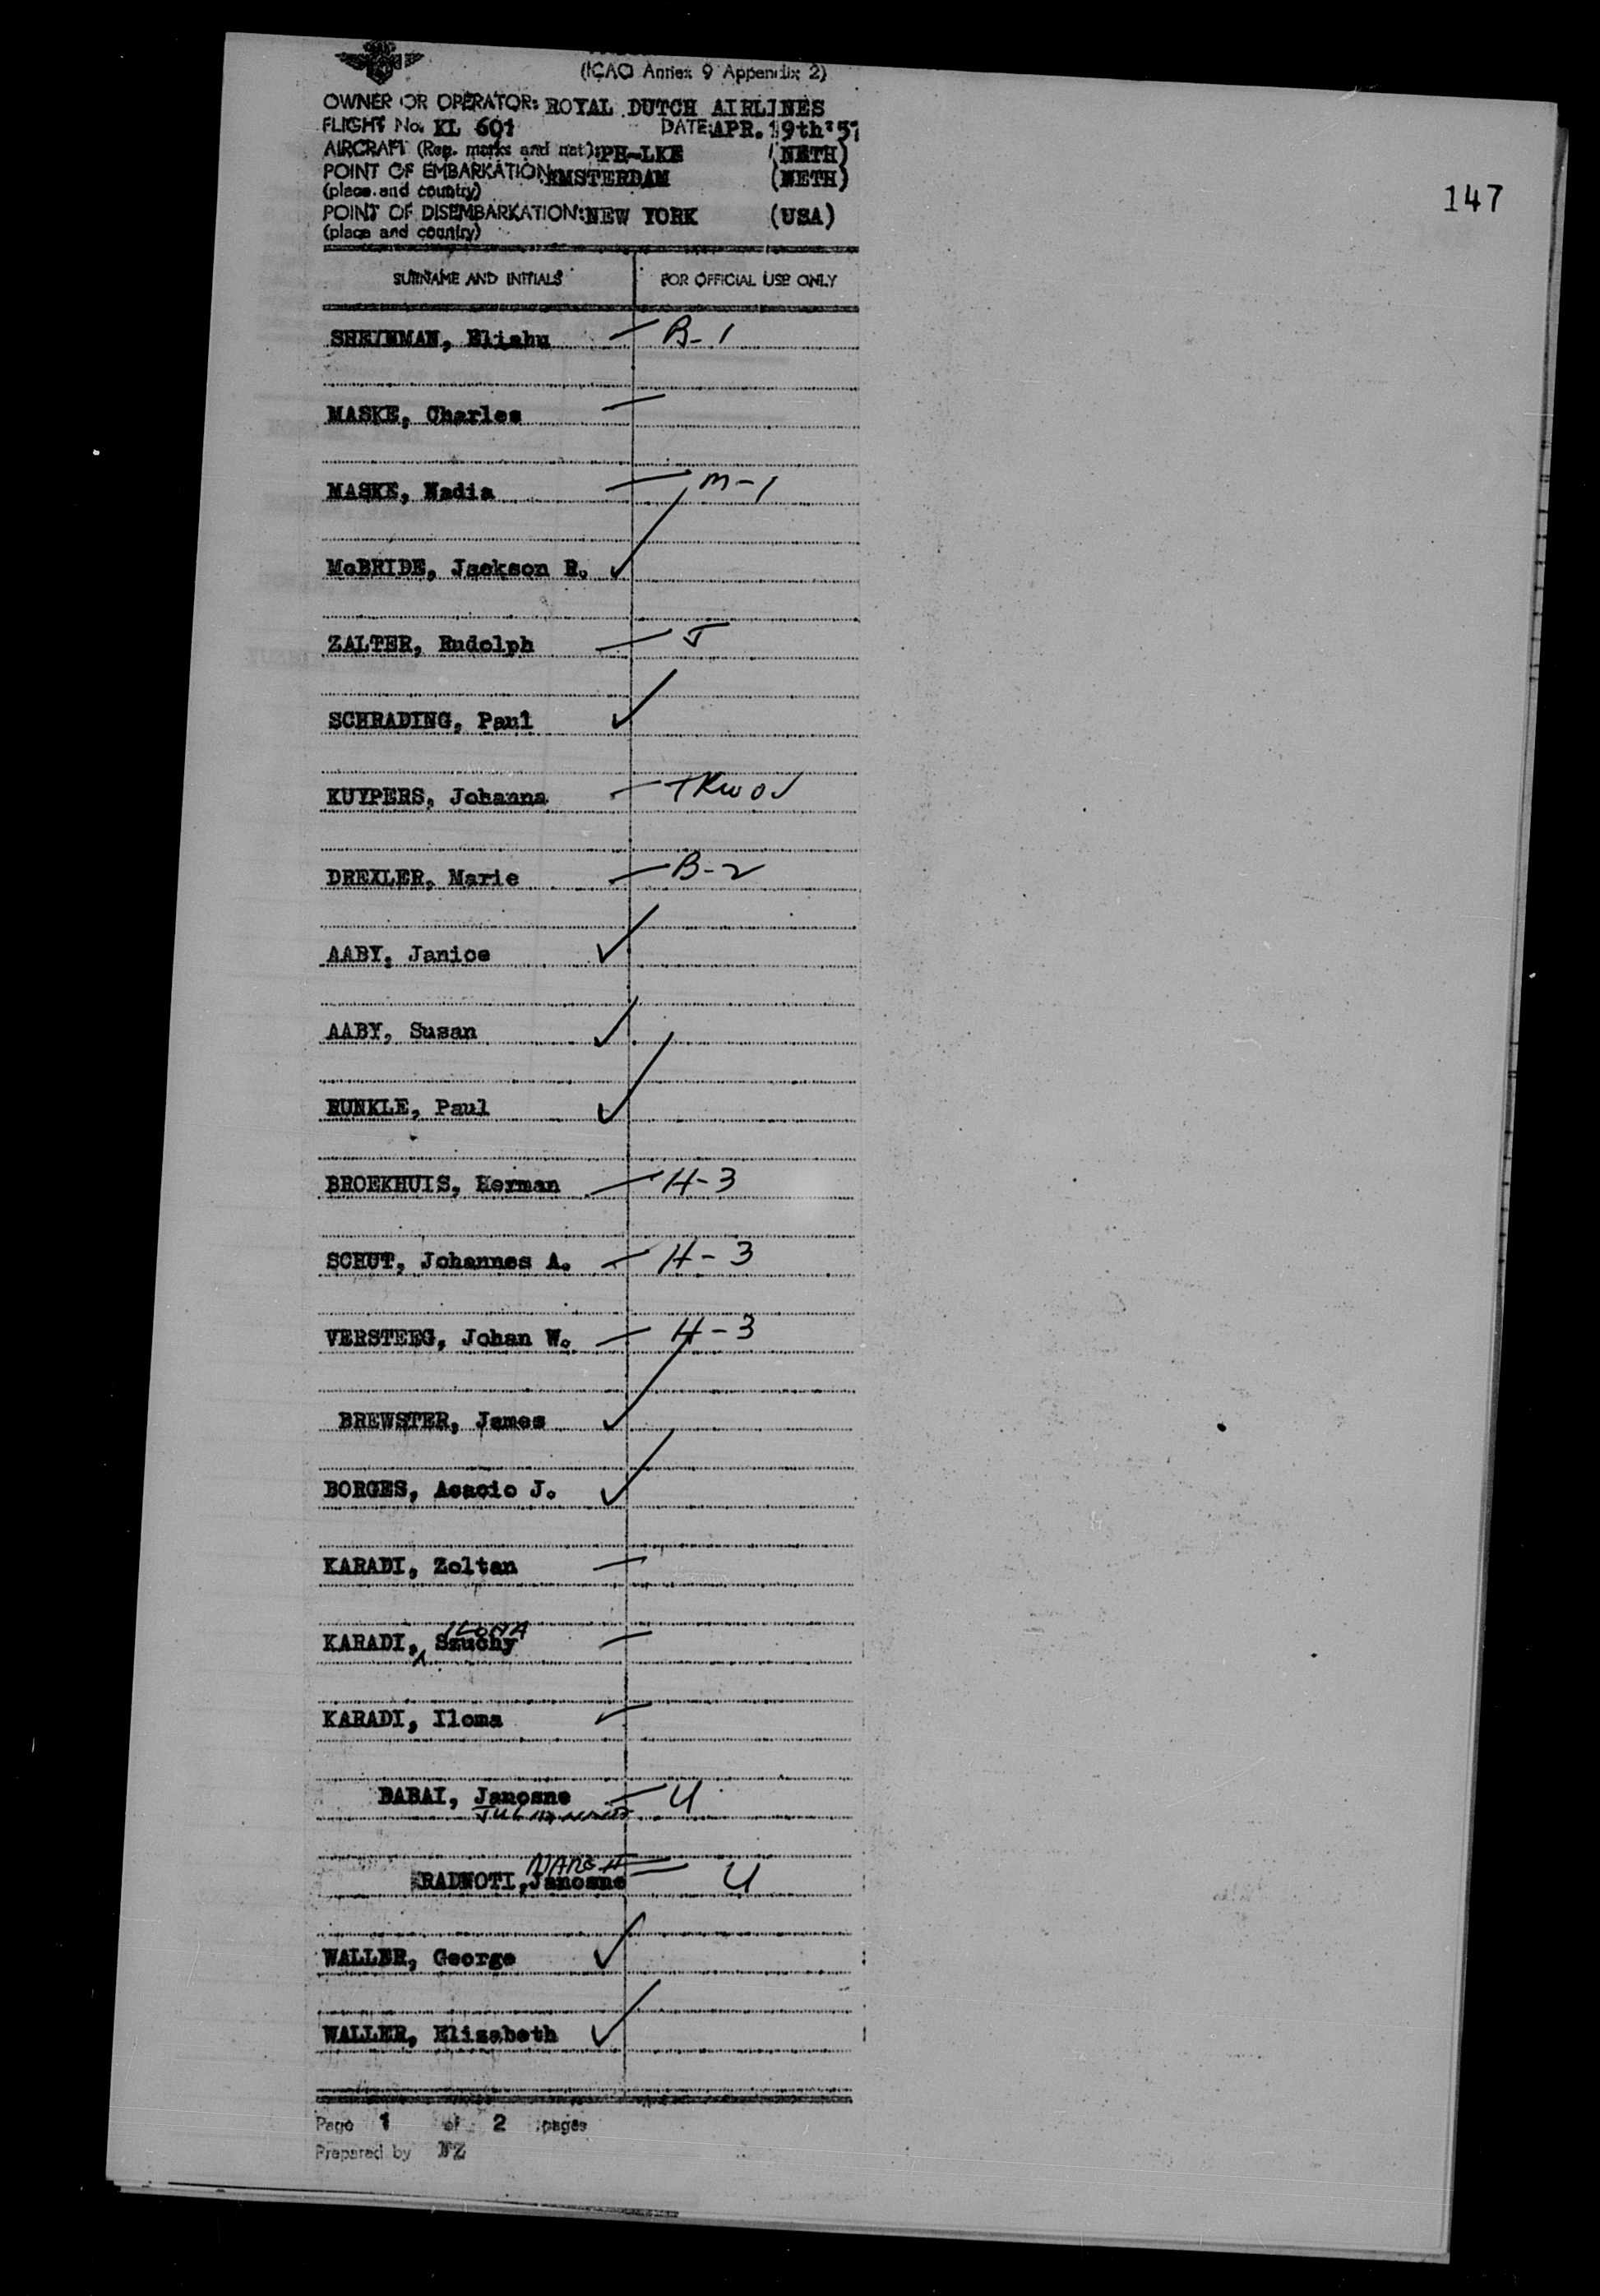 (ICAO Annex 9 Appendix 2)
OWNER OR OPERATOR: ROYAL DUTCH AIRLINES
FLIGHT No. KL 601 DATE: APR. 19th '57
AIRCRAFT (Reg. marks and nat): PH-LKE (NETH)
POINT OF EMBARKATION: AMSTERDAM (NETH)
(place and country)
147
POINT OF DISEMBARKATION: NEW YORK (USA)
(place and country)
SURNAME AND INITIALS FOR OFFICIAL USE ONLY
SHEINMAN, Eliahu B-1
MASKE, Charles
MASKE, Nadia M-1
McBRIDE, Jackson R.
ZALTER, Rudolph J
SCHRADING, Paul
KUYPERS, Johanna TRWOV
DREXLER, Marie B-2
AABY, Janice
AABY, Susan
RUNKLE, Paul
BROEKHUIS, Herman H-3
SCHUT, Johannes A. H-3
VERSTEEG, Johan W. H-3
BREWSTER, James
BORGES, Acacio J.
KARADI, Zoltan
ILONA
KARADI, Szuchy
KARADI, Ilona
BABAI, Janosne U
MARGIT
RADNOTI, Janosne U
WALLER, George
WALLER, Elizabeth
Page 1 of 2 pages
Prepared by NZ